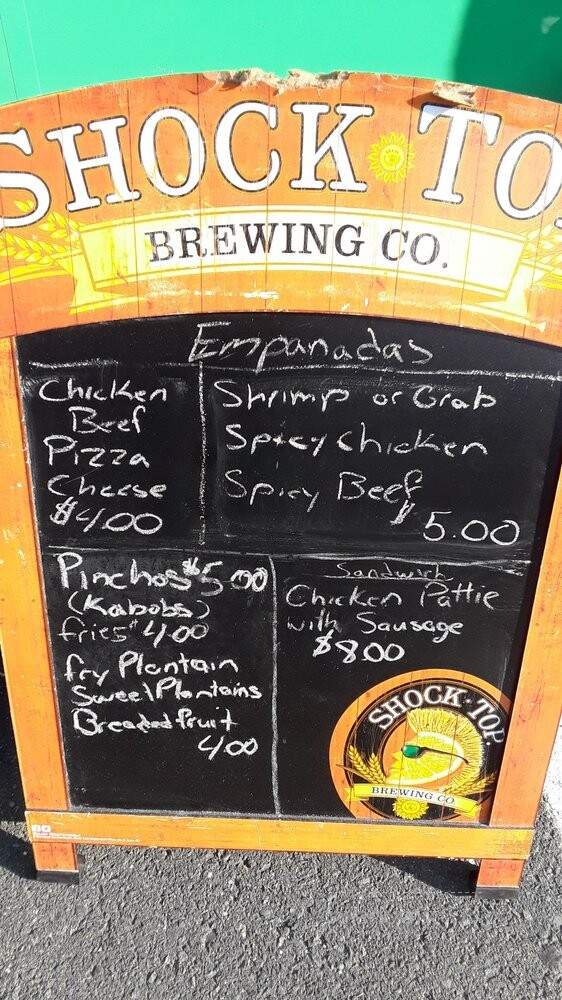 SHOCK TO
BREWING CO.
Empanadas
Chicken
Beef
Pizza
Cheese
$4.00
Shrimp or Crab
Spicy Chicken
Spicy Beef
$5.00
Pinchos $5.00
(Kabobs)
fries $4.00
fry Plantain
Sweet Plantains
Breaded fruit
4.00
Sandwich
Chicken Pattie
with Sausage
$8.00
SHOCK-TOP
BREWING CO